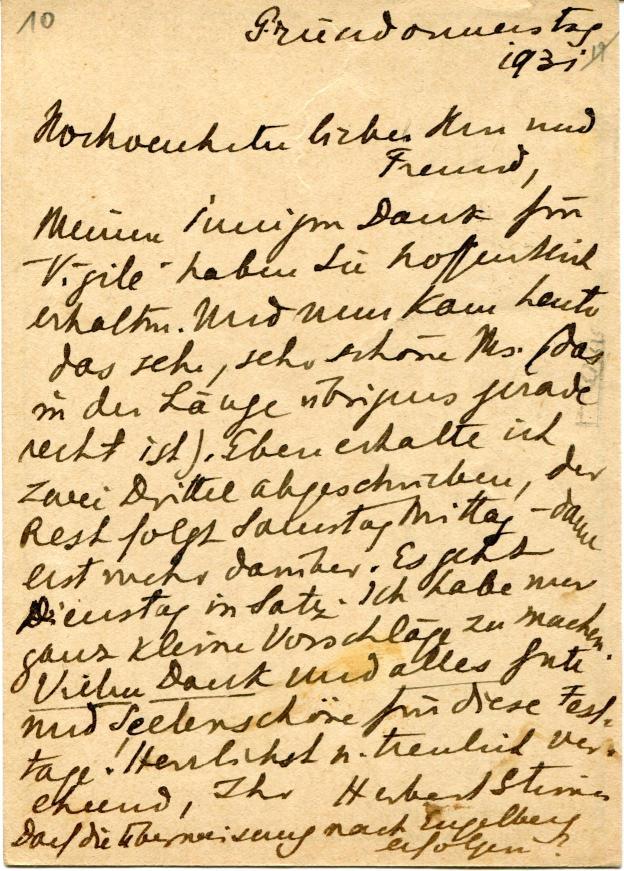 10
Gründonnerstag
1931
Hochverehrter lieber Herr und
Freund,
Meinen innigen Dank für
"Vigile" haben Sie hoffentlich
erhalten. Und nun kam heute
das sehr, sehr schöne Ms. (das
in der Länge übrigens gerade
recht ist). Eben erhalte ich
zwei Drittel abgeschrieben, der
Rest folgt Samstag Mittag - dann
erst mehr darüber. Es geht
Dienstag in Satz. Ich habe nur
ganz kleine Vorschläge zu machen.
Vielen Dank und alles Gute
und Seelenschöne für diese Fest-
tage! Herzlichst u. treulich ver-
ehrend, Ihr Herbert
Darf die Überweisung nach Engelberg
erfolgen?